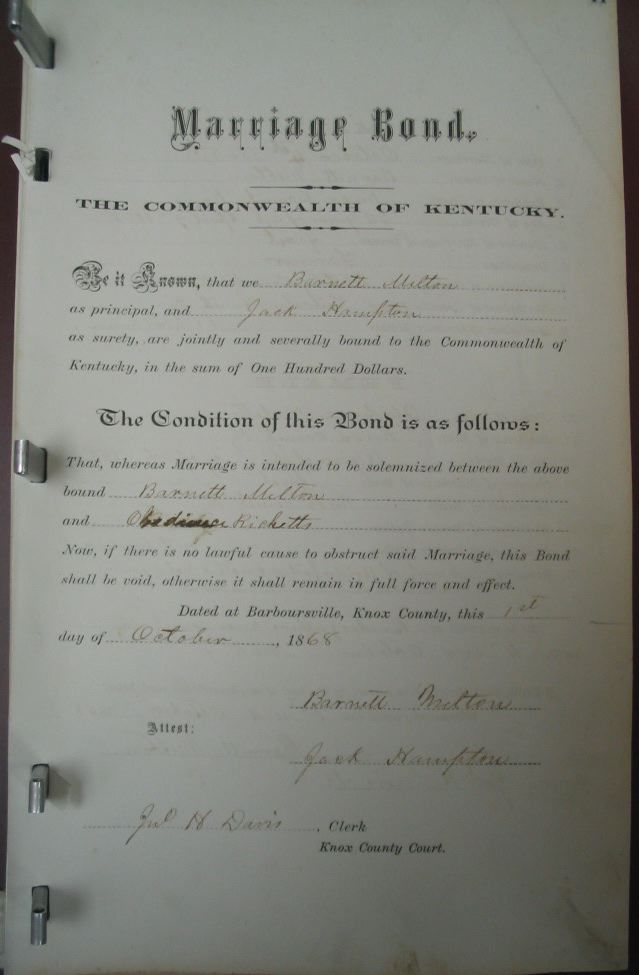 Marriage Bond.
THE COMMONWEALTH OF KENTUCKY.
Be it Known, that we Barnett Melton
as principal, and Jack Hampton
as surety, are jointly and severally bound to the Commonwealth of
Kentucky, in the sum of One Hundred Dollars.
The Condition of this Bond is as follows:
That, whereas Marriage is intended to be solemnized between the above
bound Barnett Melton
and Obedience Ricketts
Now, if there is no lawful cause to obstruct said Marriage, this Bond
shall be void, otherwise it shall remain in full force and effect.
Dated at Barboursville, Knox County, this 1st
day of October, 1868
Barnett Melton
Attest:
Jack Hampton
Jno H Davis, Clerk
Knox County Court.